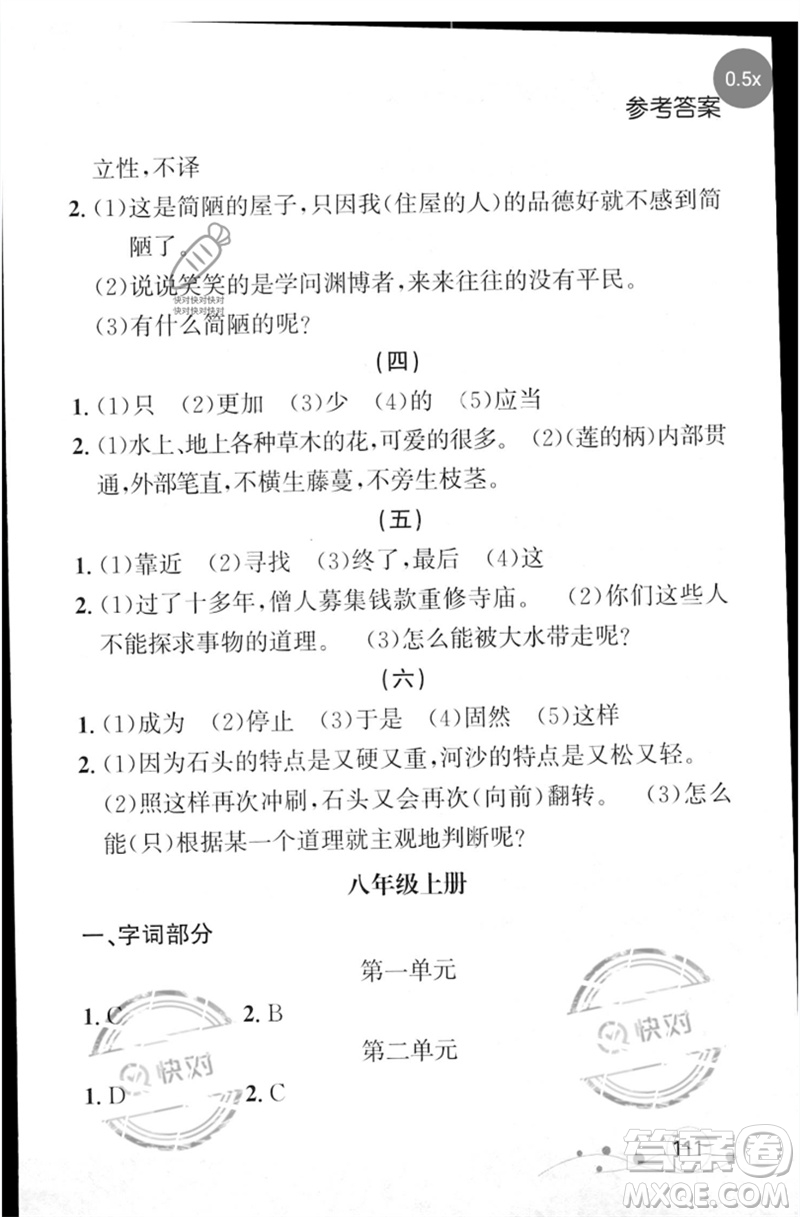 0.5x
参考答案
立性,不译
2. (1)这是简陋的屋子,只因我(住屋的人)的品德好就不感到简
陋了。
(2)说说笑笑的是学问渊博者,来来往往的没有平民。
快对快对快对
快对快对快对
(3)有什么简陋的呢?
(四)
1. (1)只 (2)更加 (3)少 (4)的 (5)应当
2. (1)水上、地上各种草木的花,可爱的很多。 (2)(莲的柄)内部贯
通,外部笔直,不横生藤蔓,不旁生枝茎。
(五)
1. (1)靠近 (2)寻找 (3)终了,最后 (4)这
2. (1)过了十多年,僧人募集钱款重修寺庙。 (2)你们这些人
不能探求事物的道理。 (3)怎么能被大水带走呢?
(六)
1. (1)成为 (2)停止 (3)于是 (4)固然 (5)这样
2. (1)因为石头的特点是又硬又重,河沙的特点是又松又轻。
(2)照这样再次冲刷,石头又会再次(向前)翻转。 (3)怎么
能(只)根据某一个道理就主观地判断呢?
八年级上册
一、字词部分
第一单元
1. C 2. B
快对
第二单元
快对
1. D 2. C
111
答案圈
MXQE.COM